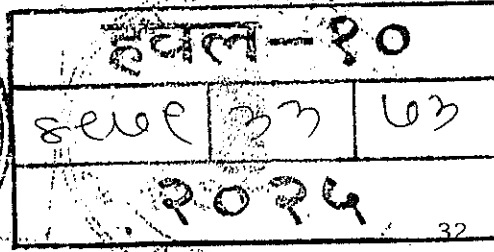 हवल-१०
४९७९ ३३ ७३
२०२५
32